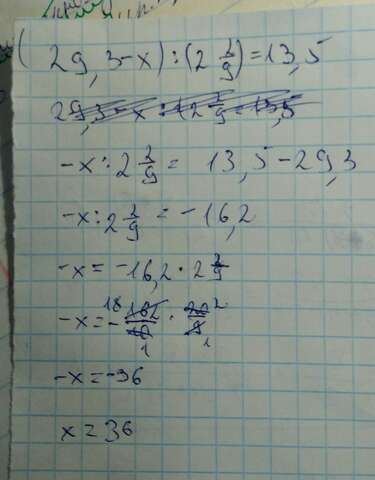 (29,3-x):(2 2/9)=13,5
29,3-x:(2 2/9=13,5
-x:2 2/9= 13,5-29,3
-x:2 2/9=-16,2
-x=-16,2·2 2/9
-x=-162/10·20/9
18 2
1 1
-x=-36
x=36